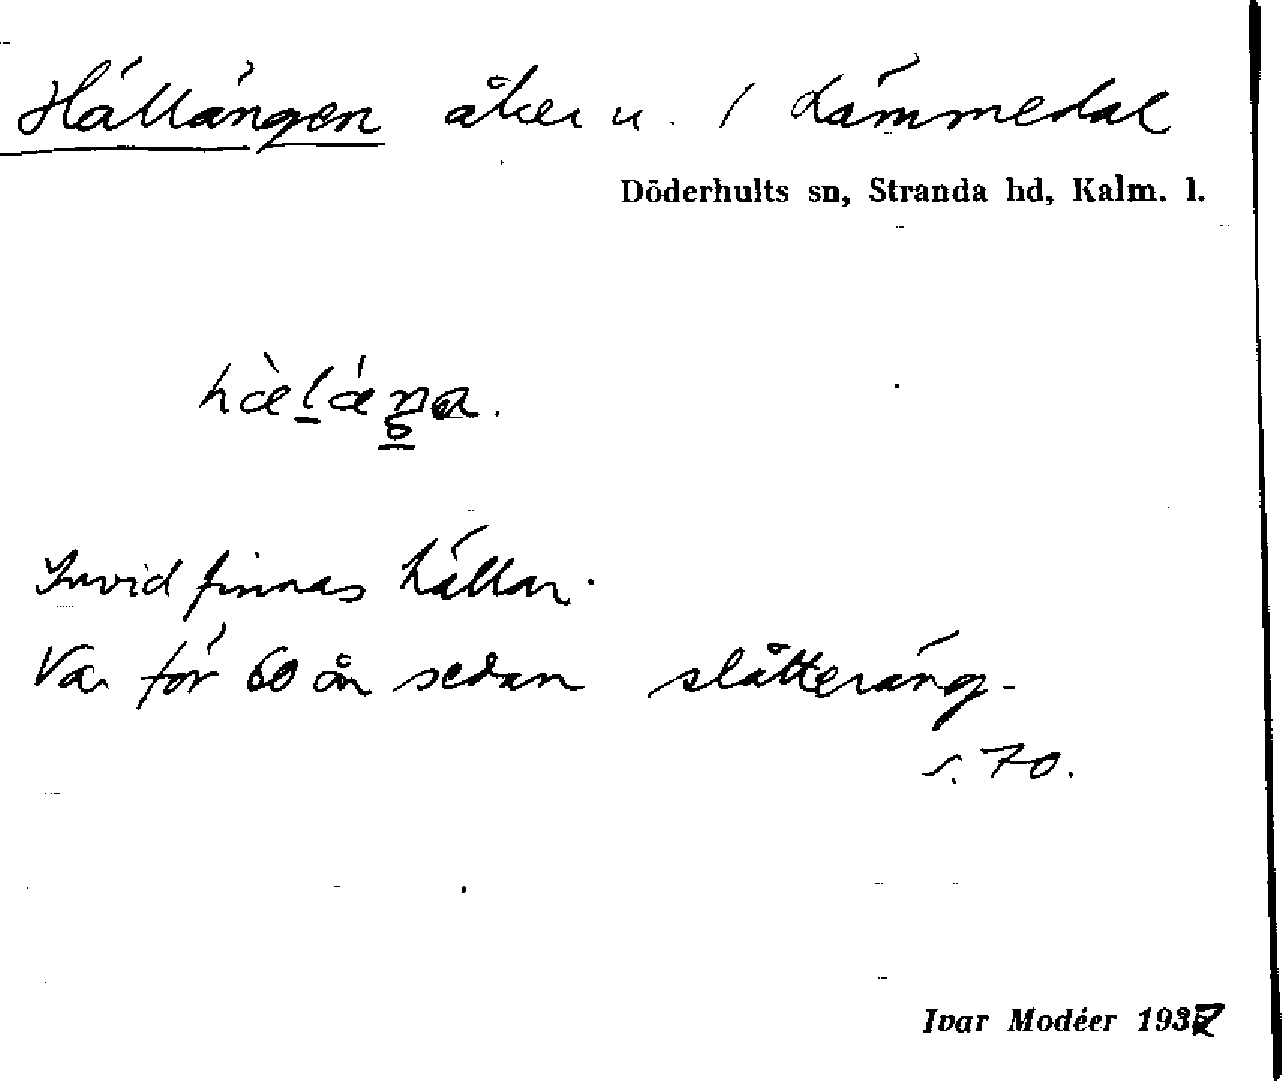 Hällängen åker u. 1 Lämmedal
Döderhults sn, Stranda hd, Kalm. l.
Invid finnas hällar.
Var för 60 år sedan slåtteräng.
s. 70.
Ivar Modéer 1937